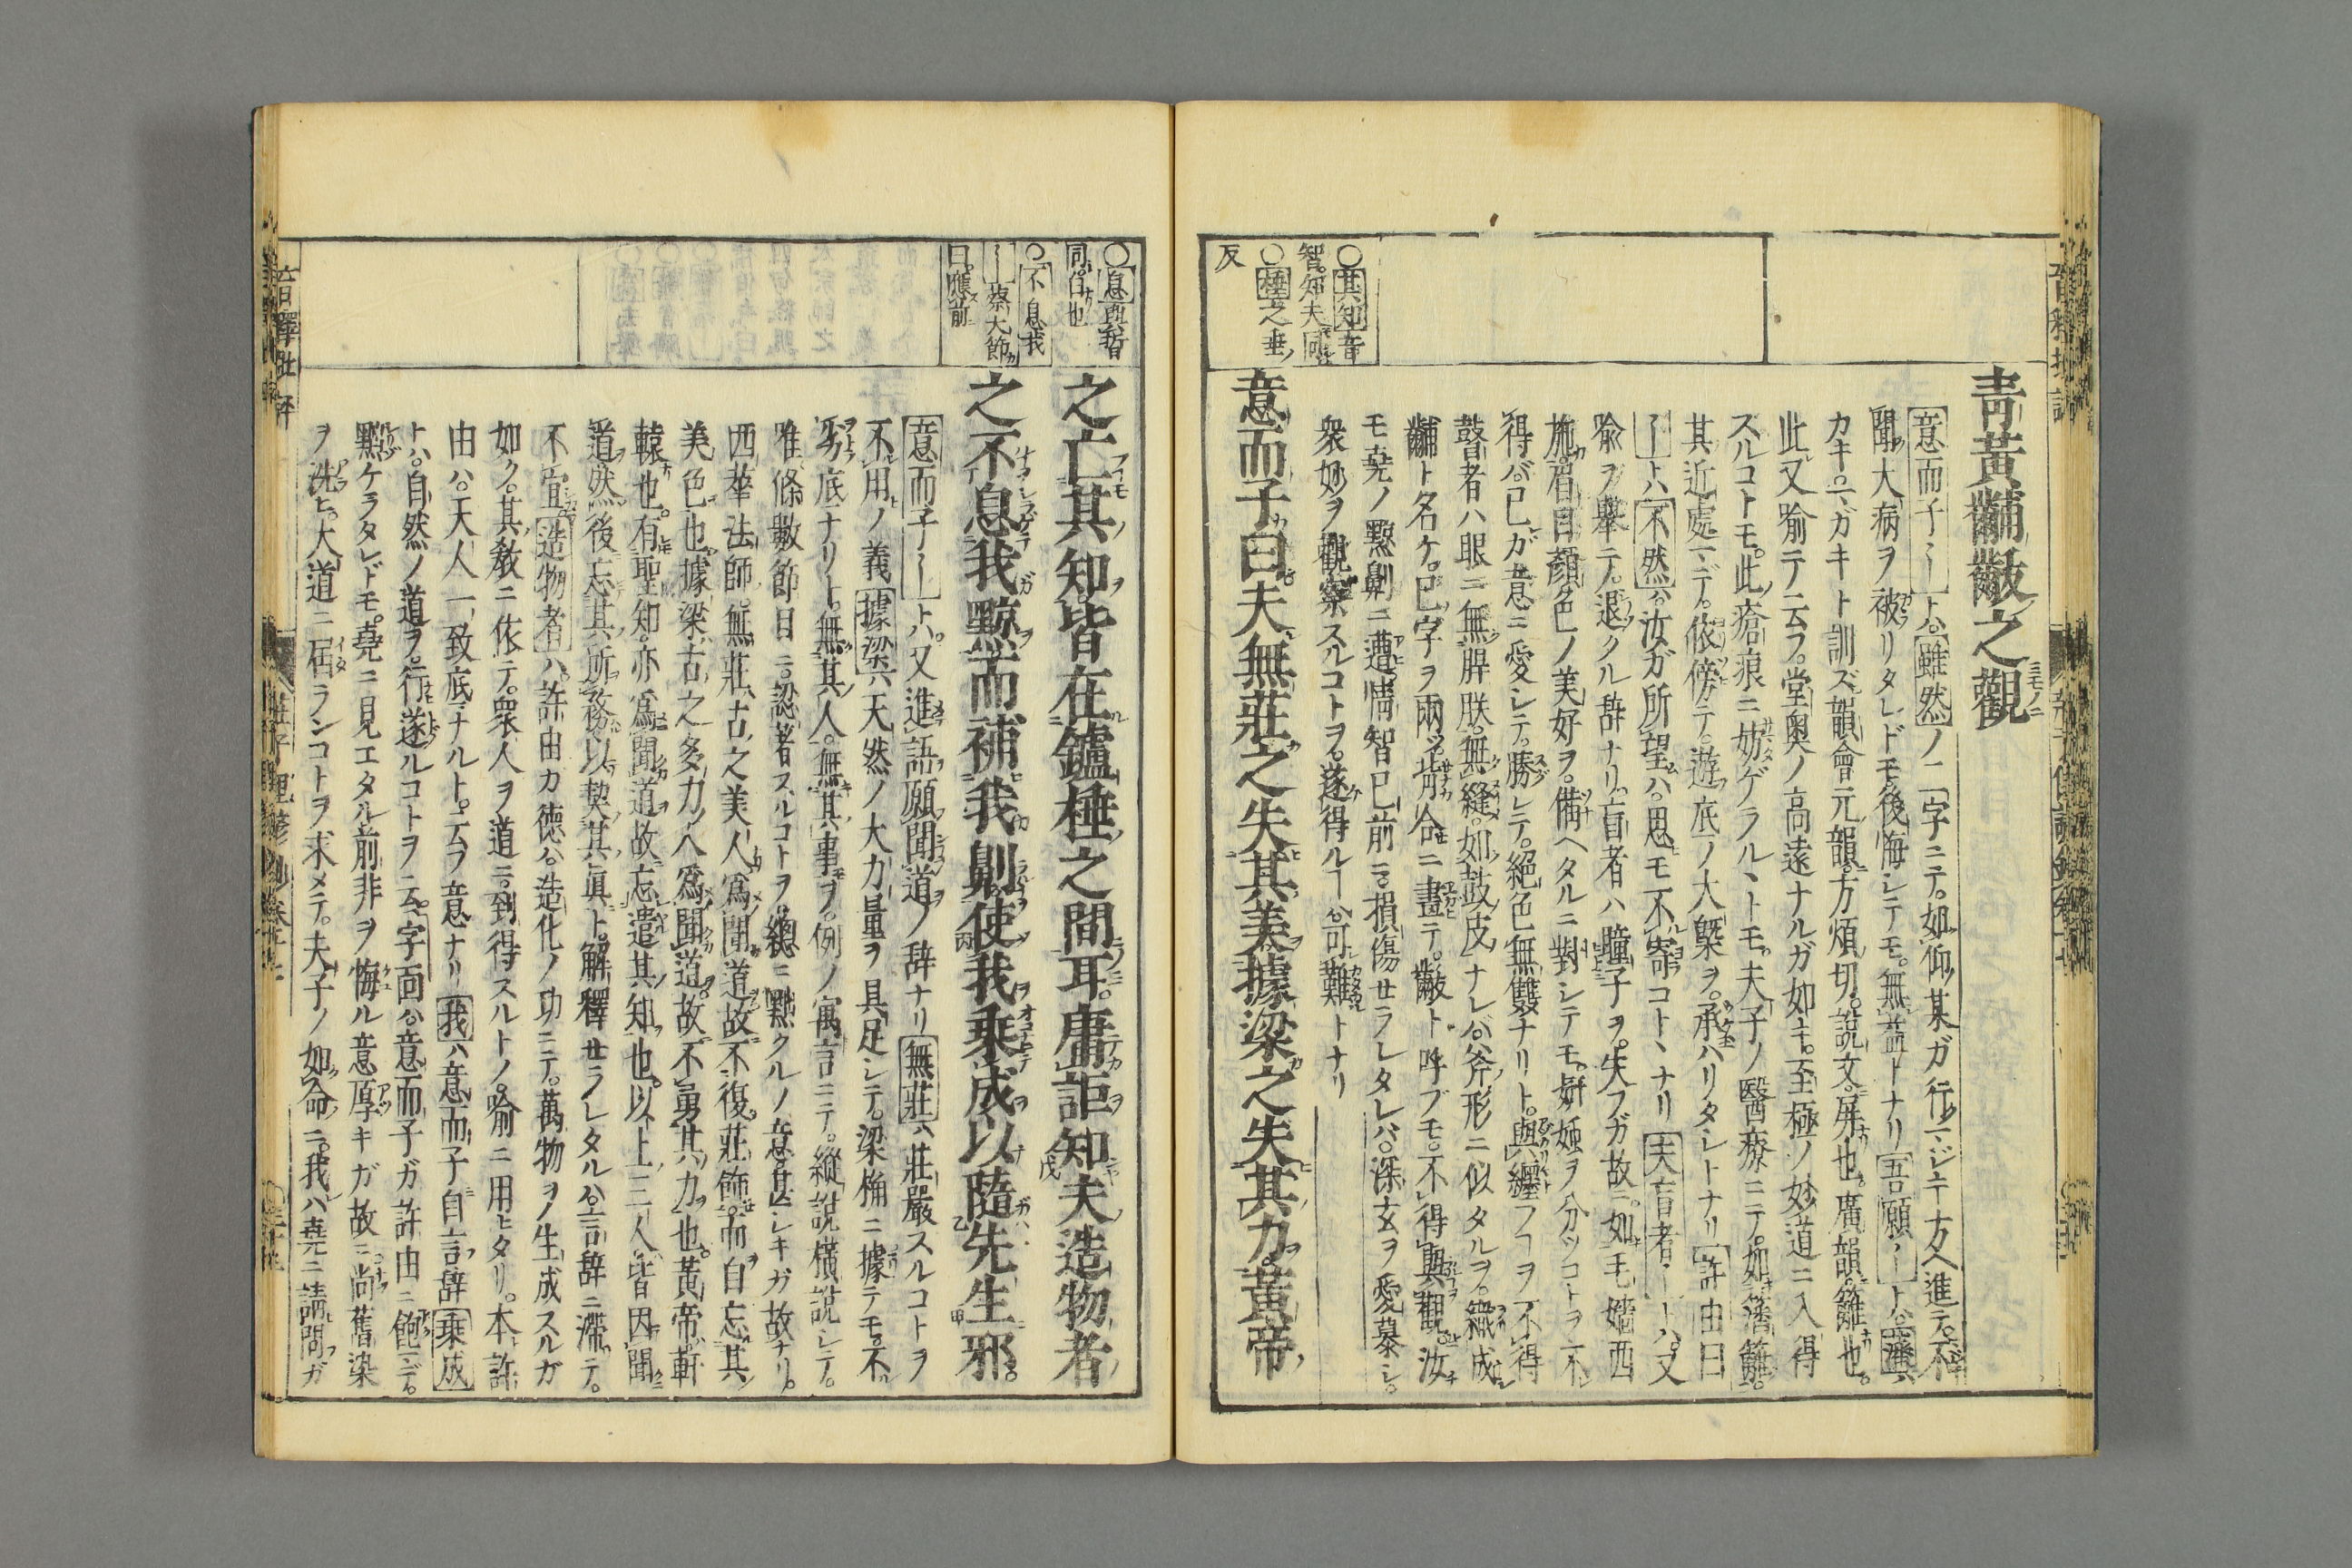 青黃黼黻之觀
意而子〡トハ雖然ノ二字ニテ如仰某ガ行
聞大病ヲ被リタレドモ後悔シテモ無益トナリ吾願〡トハ藩ハ
カキ ガキト訓ズ韻會元韻方煩切說文屏也廣韻籬也
此又喻テ云フ堂奥ノ高遠ナルガ如キ至極ノ妙道ニ入得
スルコトモ此瘡痕ニ妨ゲラルヽトモ夫子ノ醫療ニテ如藩籬
其近處 デ依傍テ遊底ノ大槩ヲ承ハリタシトナリ許由曰
〡トハ不然ハ汝ガ所望ハ思モ不寄コトヽナリ夫盲者〡トハ又
喻ヲ舉テ退クル辞ナリ盲者ハ瞳子ヲ失フガ故ニ如毛嬙西
施眉目顏色ノ美好ヲ備ヘタルニ對シテモ妍媸ヲ分ツコトヲ不
得バ己ガ意ニ愛シテ勝レテ絕色無雙ナリト與纏フヿヲ不得
瞽者ハ眼ニ無脺朕無縫如鼓皮ナレバ斧形ニ似タルヲ織成
黼ト名ケ己字ヲ兩ツ背合ニ畫テ黻ト呼ブモ不得與觀汝
モ堯ノ黥劓ニ遭情智已前ニ損傷セラレタレバ深玄ヲ愛慕シ
衆妙ヲ觀察スルコトヲ遂得ルヿハ可難トナリ
意而子曰夫無莊之失其美據梁之失其力黃帝
○其知音
智知夫同
○棰之垂
反
之亡其知皆在鑪棰之間耳庸詎知夫造物者
之不息我黥而補我劓使我乘成以隨先生邪
意而子〡トハ又進語願聞道ノ辞ナリ無莊ハ莊嚴スルコトヲ
不用ノ義據梁ハ天然ノ大力量ヲ具足シテ梁桷ニ據テモ不
労底ナリト無其人無其事ヲ例ノ寓言ニテ縱說橫說シテ
唯條數節目ニ認著スルコトヲ總ニ黙クルノ意甚シキガ故ナリ
西華法師無莊古之美人爲聞道故不復莊飾而自忘其
美色也據梁古之多力人爲聞道故不勇其力也黃帝軒
轅也有聖知亦爲聞道故忘遣其知也以上三人皆因聞
道然後忘其所務以契其眞ト解釋セラレタルハ言辞ニ滯テ
不宜造物者ハ許由カ德ハ造化ノ功ニテ萬物ヲ生成スルガ
如ク其敎ニ依テ衆人ヲ道ニ到得スルトノ喻ニ用ヒタリ本許
由ハ天人一致底ナルト云フ意ナリ我ハ意而子自言辞乘成
トハ自然ノ道ヲ行遂ルコトヲ云字面ハ意而子ガ許由ニ飽 デ
黥ケラタレドモ堯ニ見エタル前非ヲ悔ル意厚キガ故ニ尚舊染
ヲ洗ヒ大道ニ屆ランコトヲ求メテ夫子ノ如命ニ我ハ堯ニ請問ガ
○不息我
〡〡蔡大節
曰應前